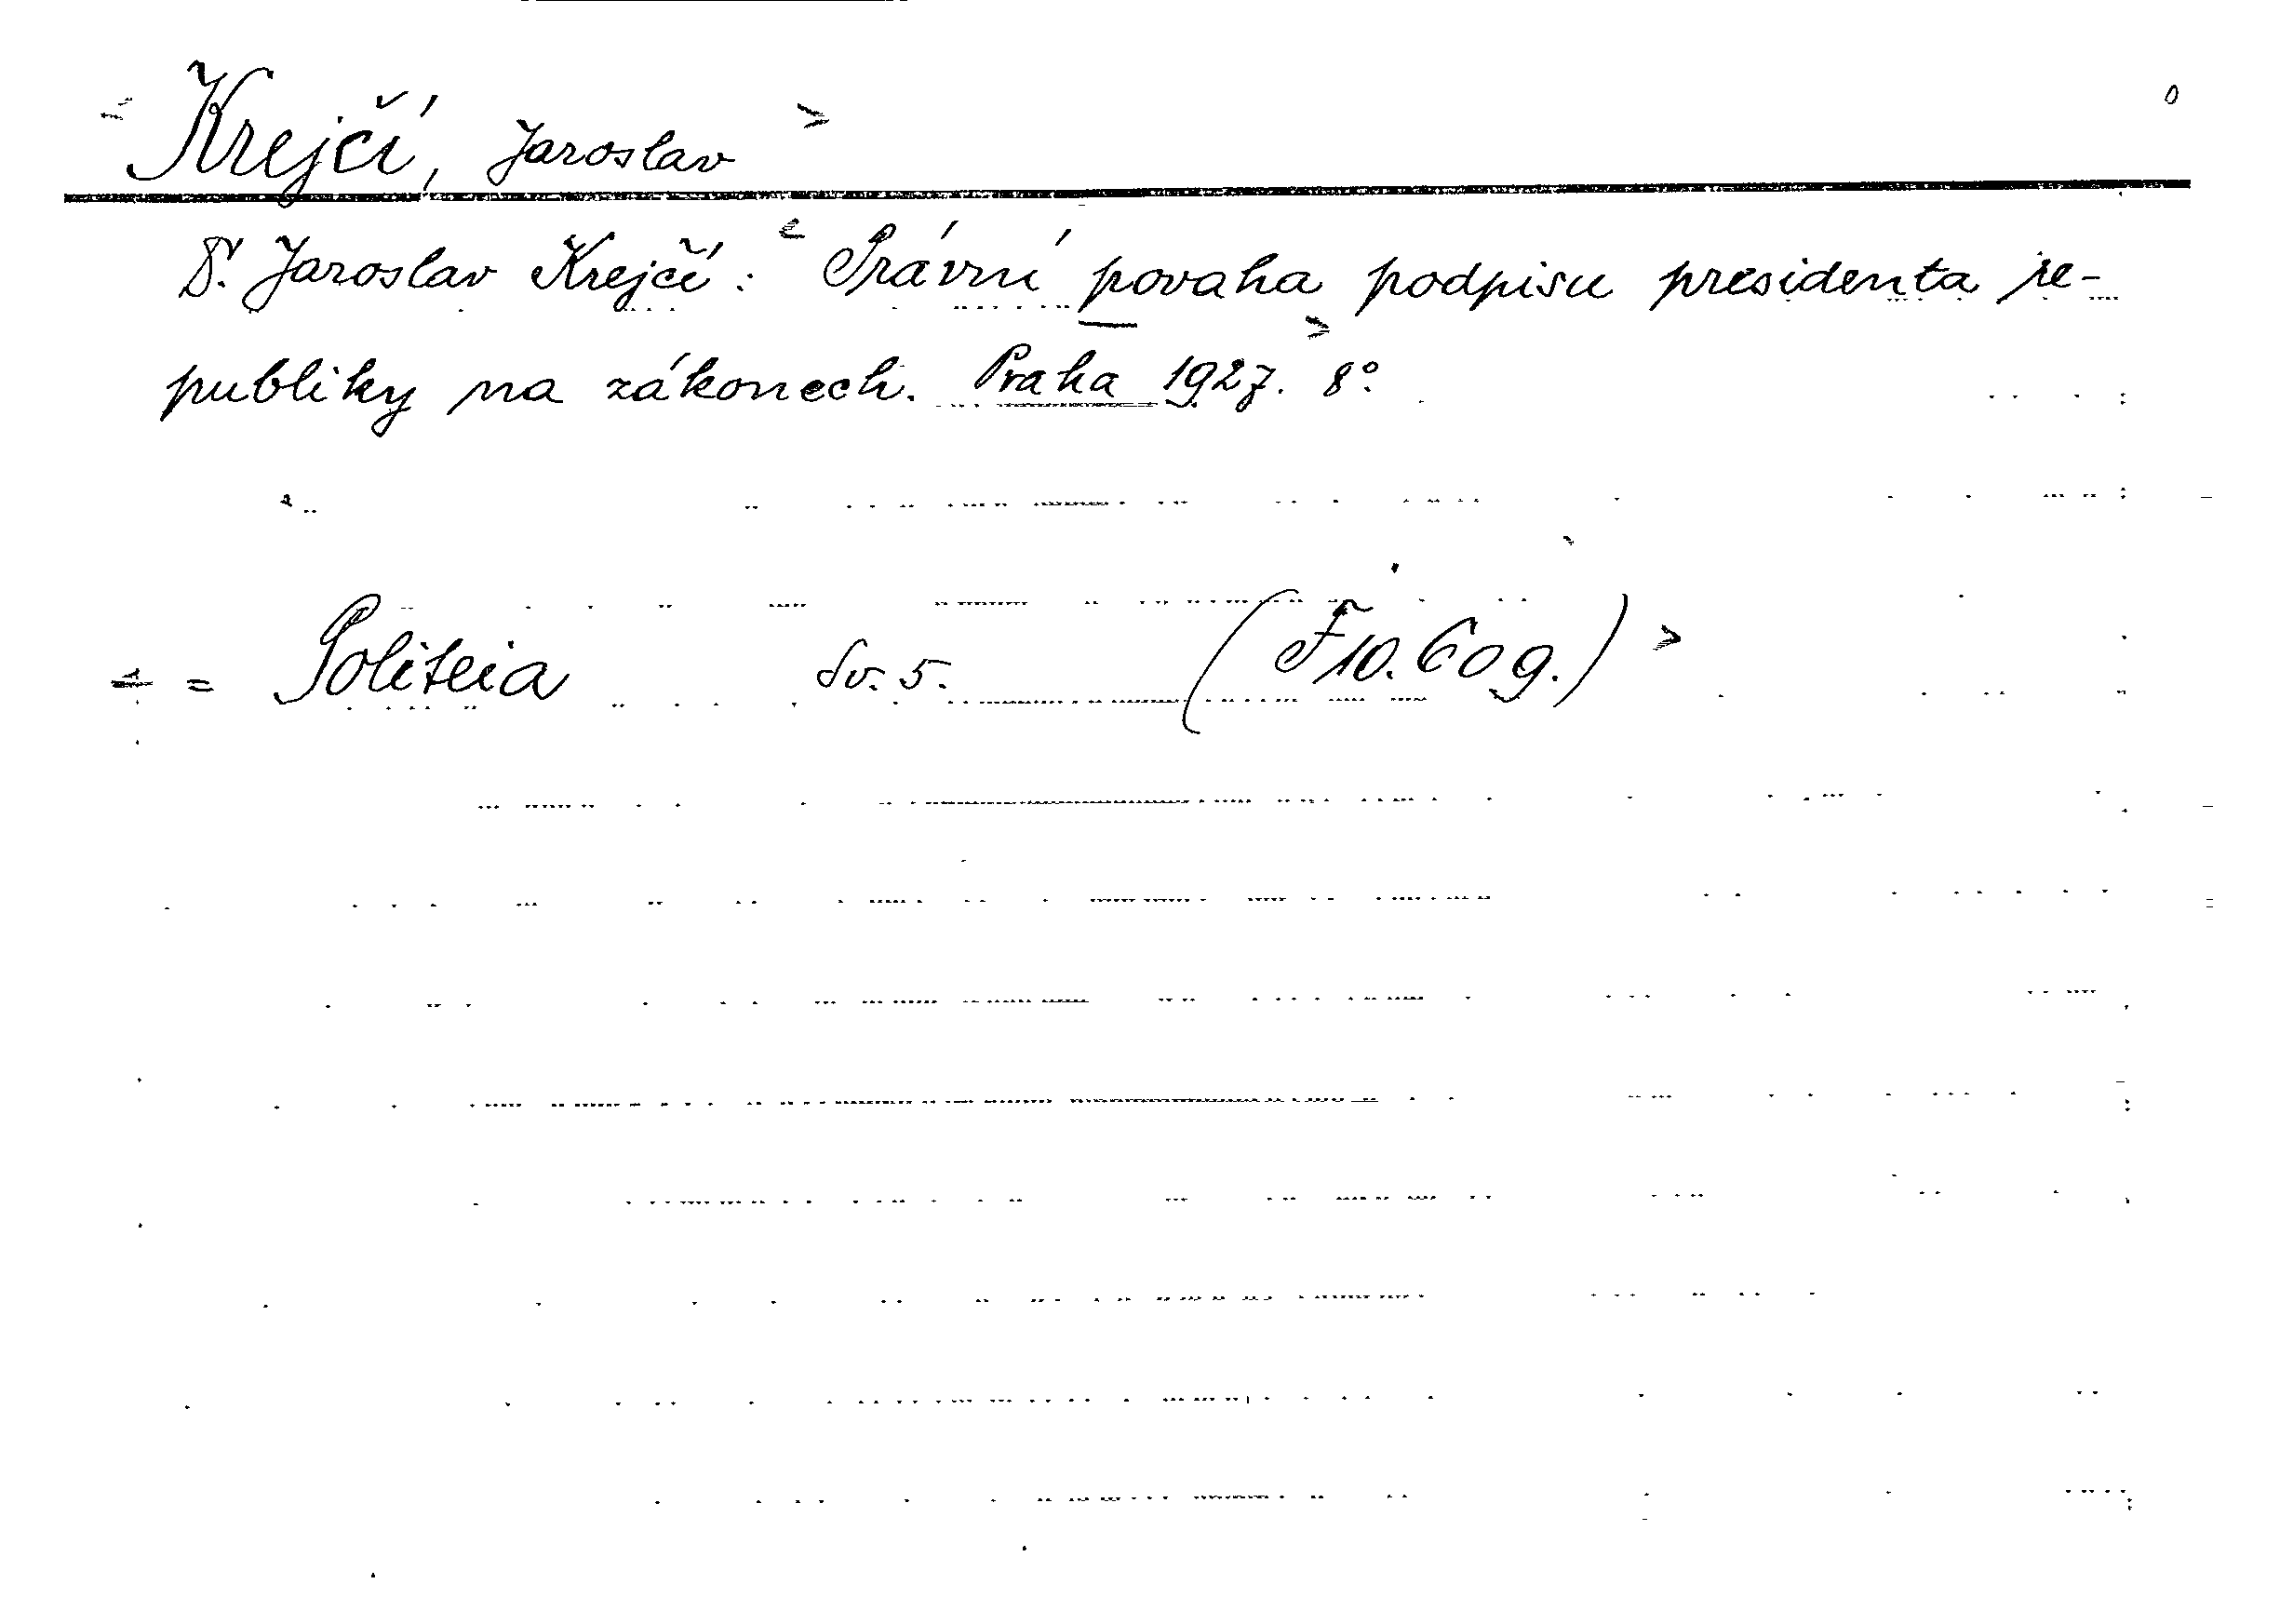 Krejčí, Jaroslav
Dr. Jaroslav Krejčí: Právní povaha podpisu presidenta re-
publiky na zákonech. Praha 1927. 8°.
= Politeia Sv. 5. (F10.609.)